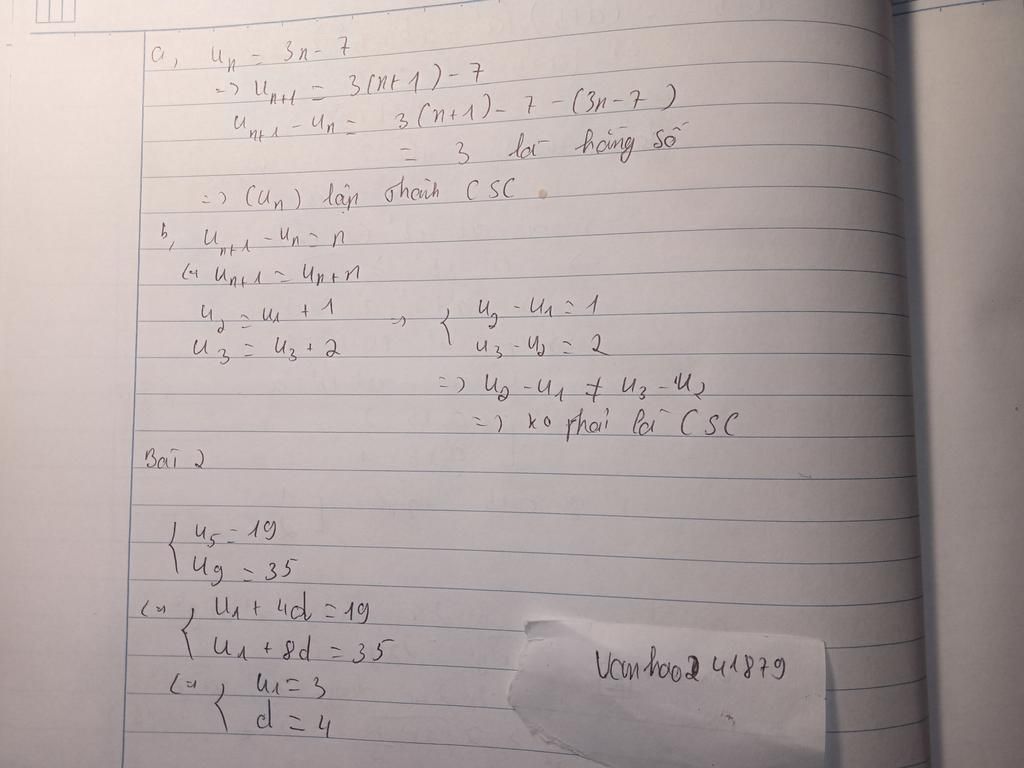 a, uₙ = 3n - 7
=> uₙ₊₁ = 3(n+1) - 7
uₙ₊₁ - uₙ = 3(n+1) - 7 - (3n - 7)
= 3 là hằng số
=> (uₙ) lập thành CSC
b, uₙ₊₁ - uₙ = n
<=> uₙ₊₁ = uₙ + n
u₂ = u₁ + 1 => { u₂ - u₁ = 1
u₃ = u₃ + 2 { u₃ - u₂ = 2
=> u₂ - u₁ ≠ u₃ - u₂
=> ko phải là CSC
Bài 2
{ u₅ = 19
u₉ = 35
<=> { u₁ + 4d = 19
u₁ + 8d = 35
<=> { u₁ = 3
d = 4
Vanhao2 41879